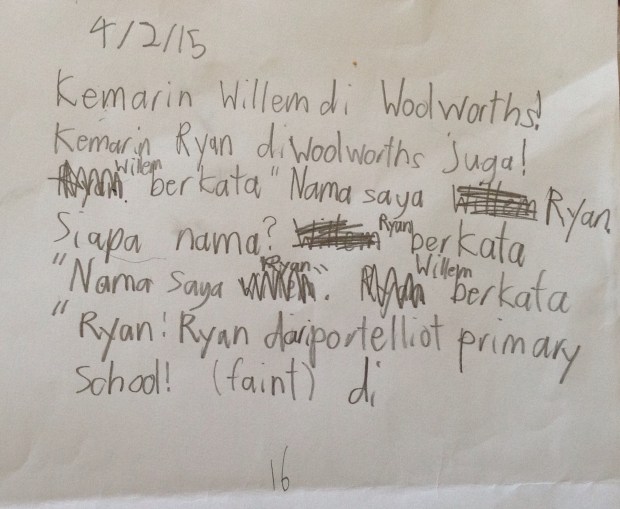 4/2/15
Kemarin Willem di Woolworths!
Kemarin Ryan di Woolworths juga!
Willem berkata "Nama saya Ryan.
Siapa nama? Ryan berkata
"Nama saya Ryan". Willem berkata
"Ryan! Ryan dari portelliot primary
School! (faint) di
16